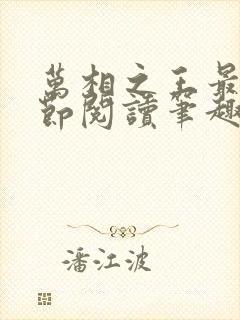 萬相之王最
節閱讀筆趣
潘江波